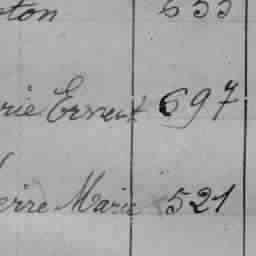 ton 633
rie Ernest 697
erre Marie 521